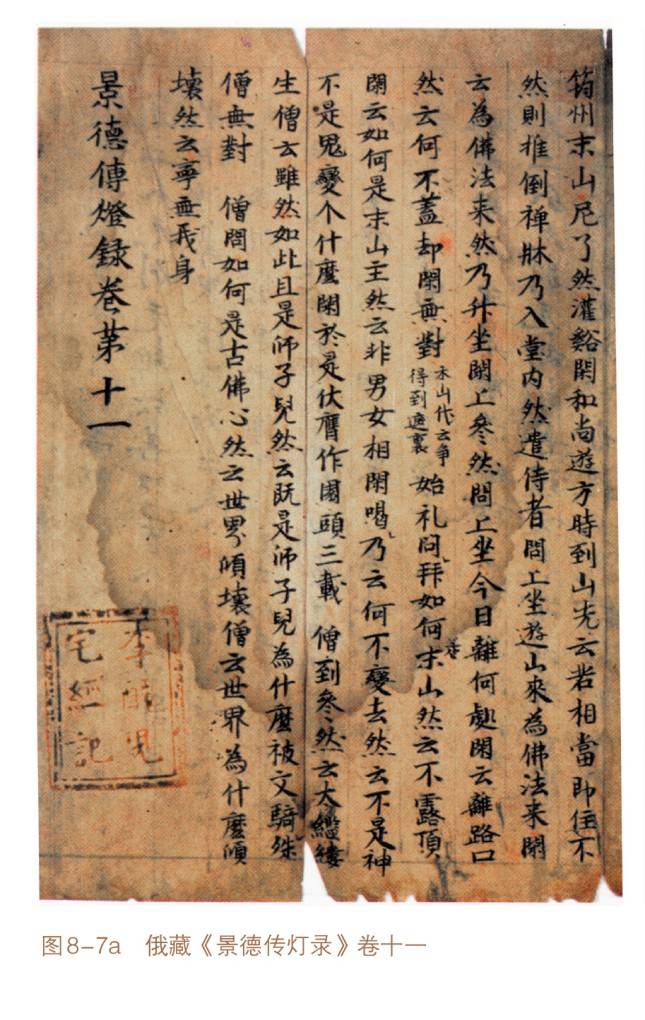 筠州末山尼了然灌谿閑和尚遊方時到山先云若相當即住不
然則推倒禅牀乃入堂内然遣侍者問上坐遊山來為佛法来閑
云為佛法来然乃升坐閑上參然問上坐今日離何處閑云離路口
然云何不蓋却閑無對末山代云争得到遮裏始礼問拜如何末山然云不露頂
閑云如何是末山主然云非男女相閑喝乃云何不變去然云不是神
不是鬼變个什麼閑於是伏膺作園頭三載 僧到參然云大繿縷
生僧云雖然如此且是師子兒然云既是師子兒為什麼被文騎殊
僧無對 僧問如何是古佛心然云世界傾壞僧云世界為什麼傾
壞然云寧無我身
景德傳燈録卷第十一
李醜兒
宅經記
图8-7a 俄藏《景德传灯录》卷十一